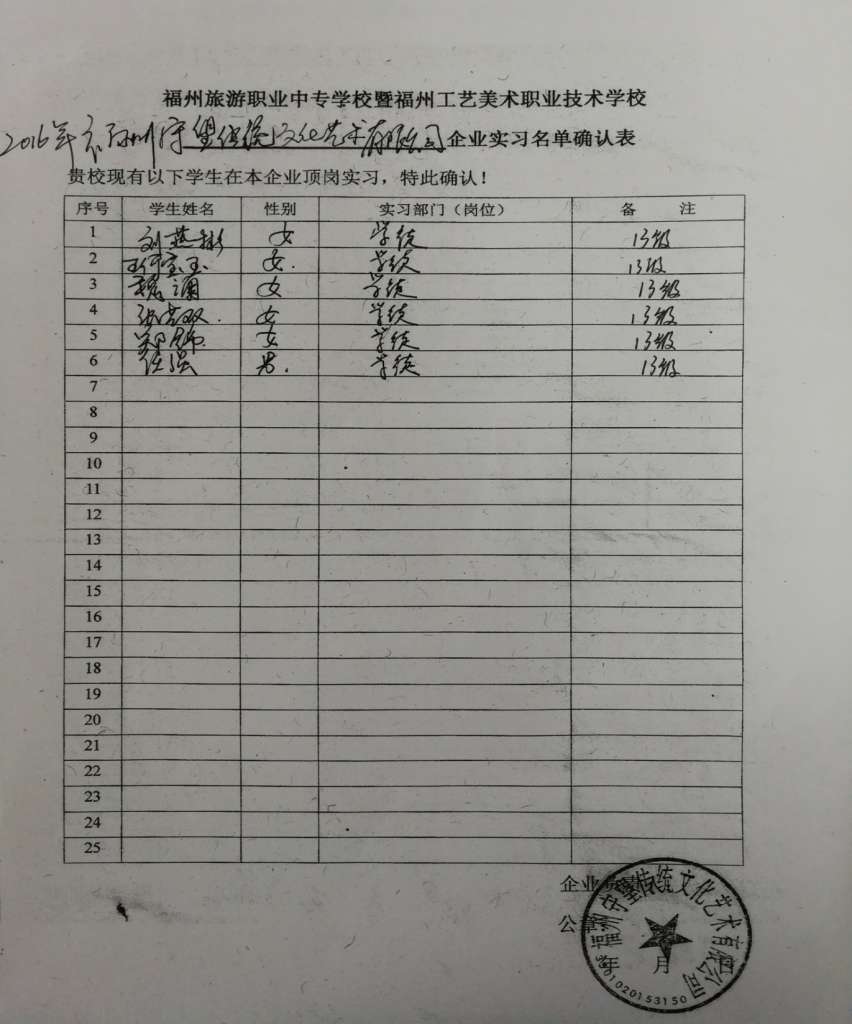 福州旅游职业中专学校暨福州工艺美术职业技术学校
2016年 福州守望传统文化艺术有限公司企业实习名单确认表
贵校现有以下学生在本企业顶岗实习，特此确认！
序号 学生姓名 性别 实习部门（岗位） 备 注
1 刘燕彬 女 学徒 13级
2 宝玉 女. 学徒 13级
3 魏 女 学徒 13级
4 张 双. 女 学徒 13级
5 郑 女 学徒 13级
6 任强 男. 学徒 13级
7
8
9
10
11
12
13
14
15
16
17
18
19
20
21
22
23
24
25
企业
公章
年 月 日
福州守 传统文化艺术有限公司
01020153150